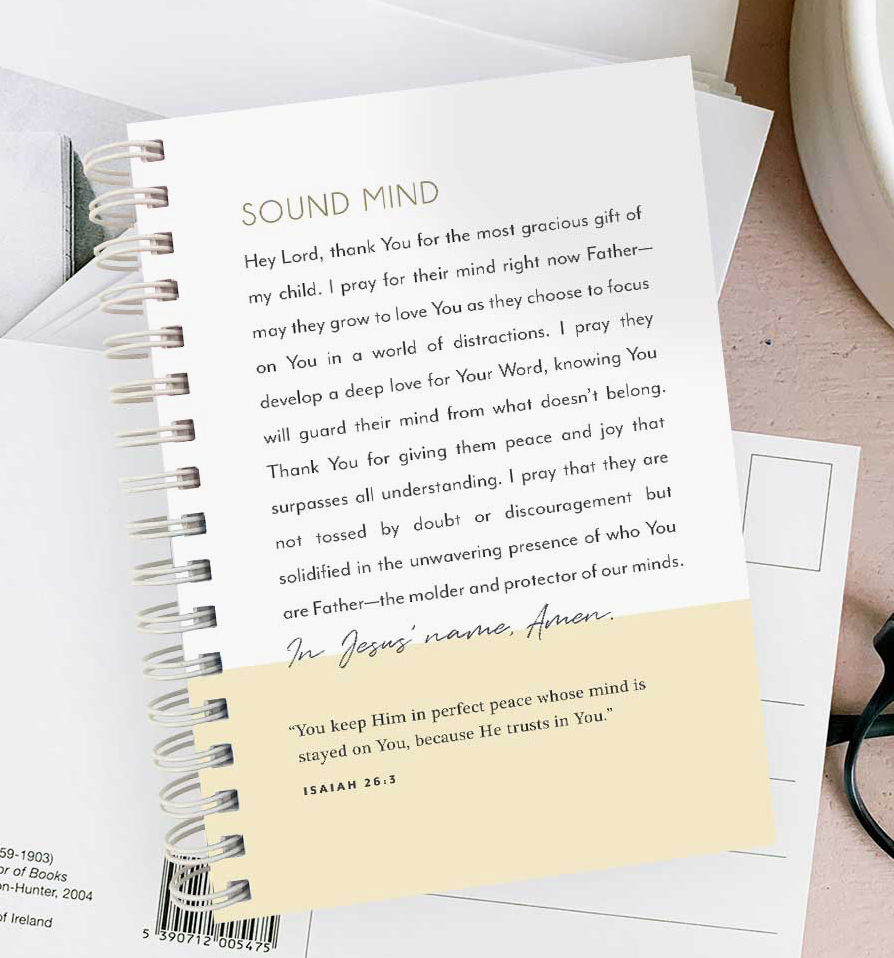 SOUND MIND
Hey Lord, thank You for the most gracious gift of
my child. I pray for their mind right now Father—
may they grow to love You as they choose to focus
on You in a world of distractions. I pray they
develop a deep love for Your Word, knowing You
will guard their mind from what doesn't belong.
Thank You for giving them peace and joy that
surpasses all understanding. I pray that they are
not tossed by doubt or discouragement but
solidified in the unwavering presence of who You
are Father—the molder and protector of our minds.
In Jesus' name, Amen.
“You keep Him in perfect peace whose mind is
stayed on You, because He trusts in You.”
ISAIAH 26:3
59-1903)
or of Books
n-Hunter, 2004
of Ireland
5 390712 005475